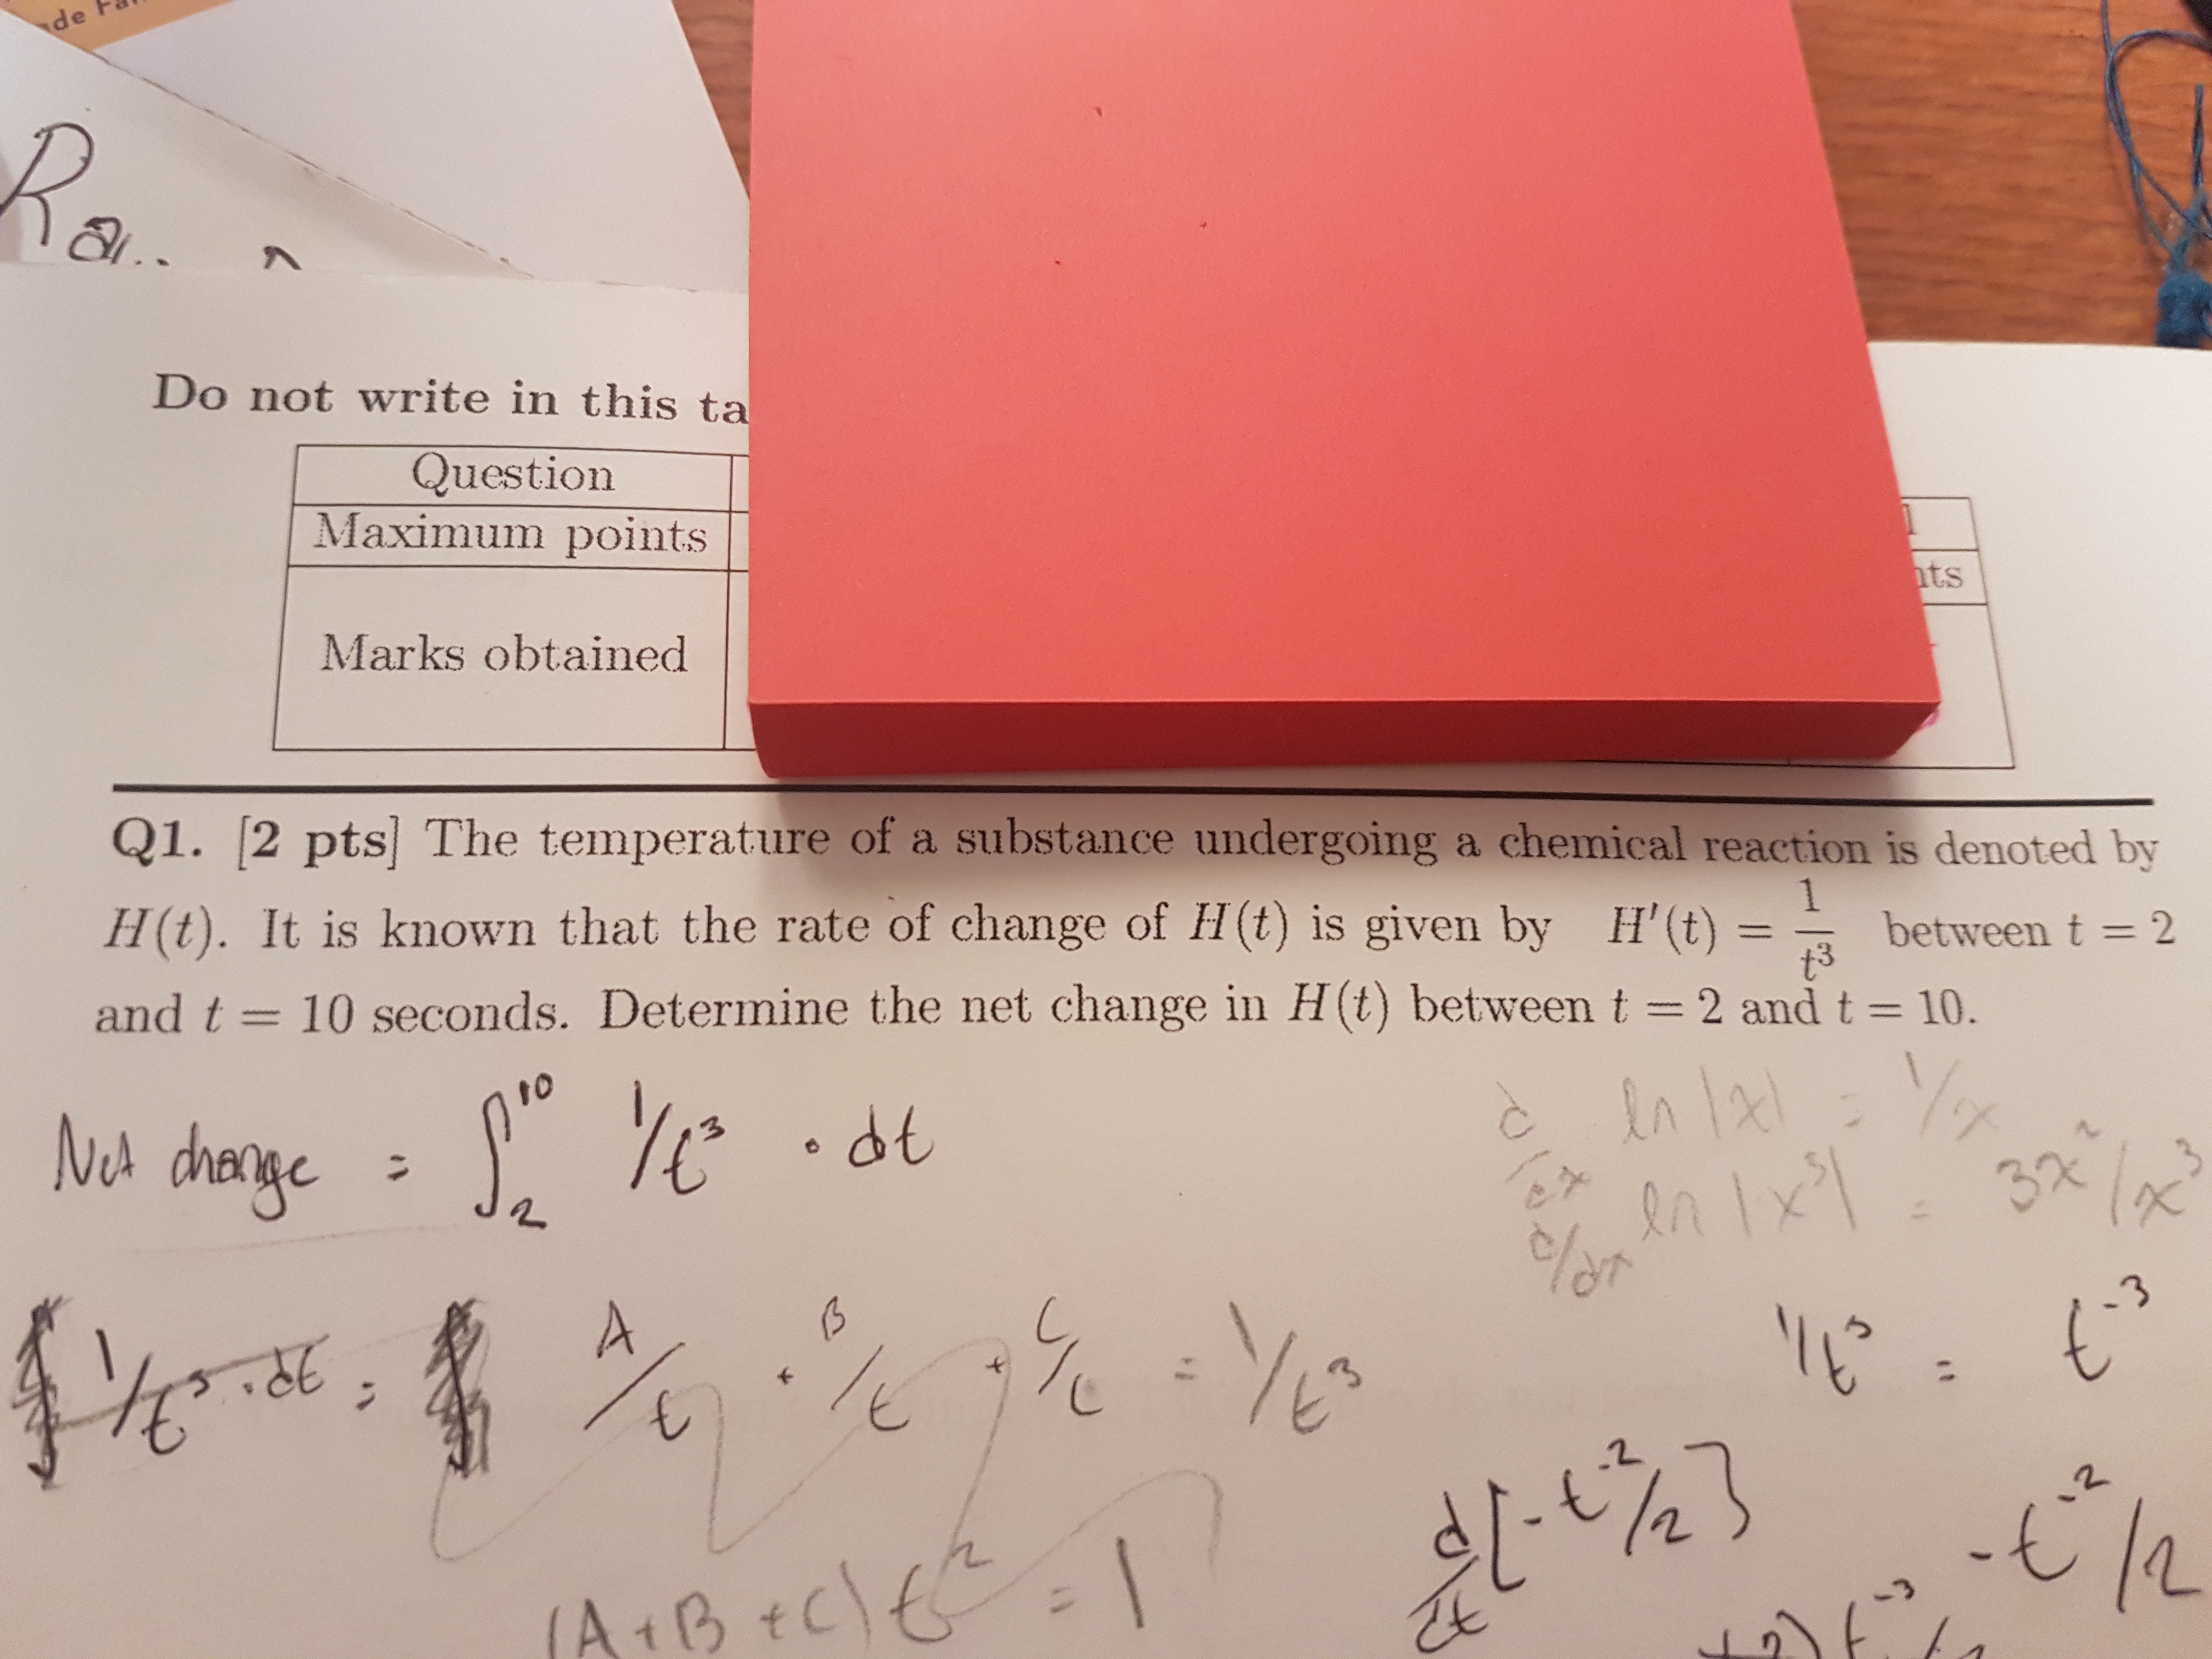 Do not write in this ta
Question
Maximum points
nts
Marks obtained
Q1. [2 pts] The temperature of a substance undergoing a chemical reaction is denoted by
H(t). It is known that the rate of change of H(t) is given by H'(t) = 1/t³ between t = 2
and t = 10 seconds. Determine the net change in H(t) between t = 2 and t = 10.
Net change = ∫₂¹⁰ 1/t³ · dt
d/dx ln|x| = 1/x
d/dx ln|x³| = 3x²/x³
∫ 1/t³ · dt = ∫ A/t + B/t + C/t = 1/t³
1/t³ = t⁻³
d/dt [-t⁻²/2]
-t⁻²/2
(A+B+C)t² = 1